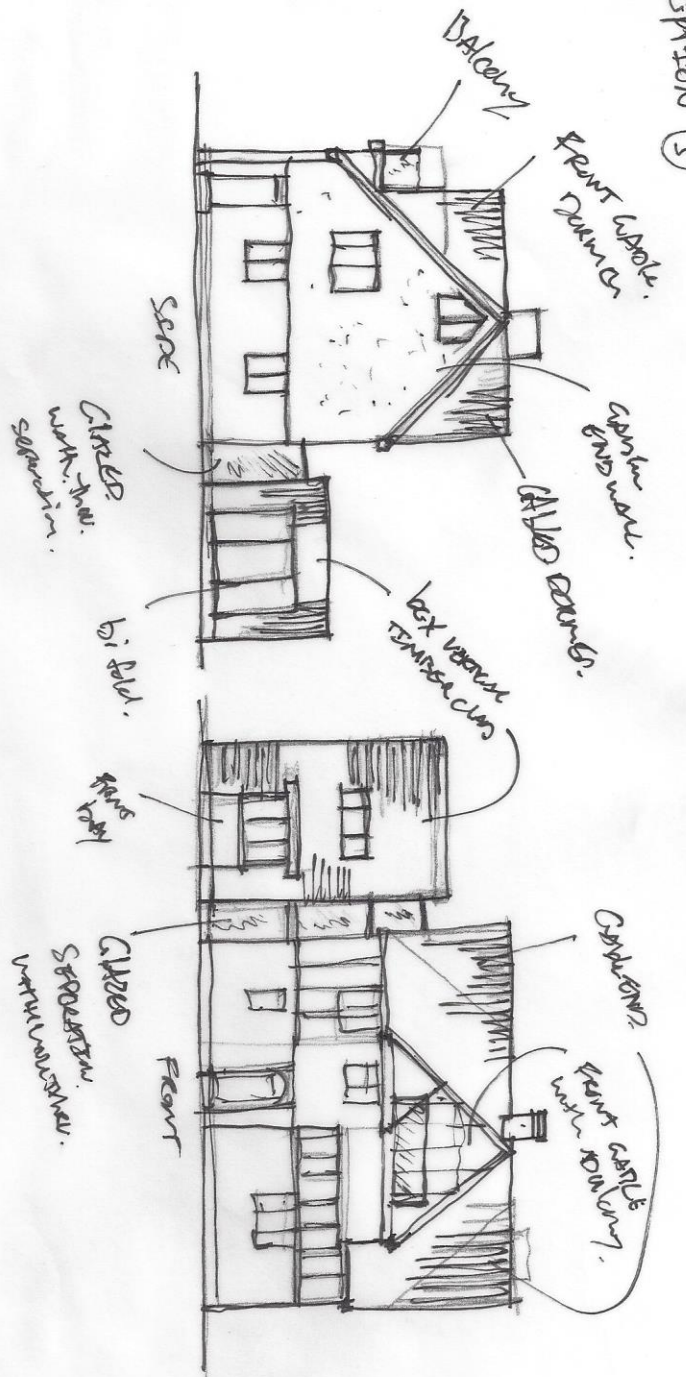 OPTION 3
BAlcony
FRONT GABLE
DORMER
GABLE
END WALL.
GABLED DORMER.
SIDE
GLAZED.
separation.
bi fold.
box VERTICAL
TIMBER CLAD
BAY
GLAZED
SEPARATION.
FRONT
GABLE END.
FRONT GABLE
with BALCONY.